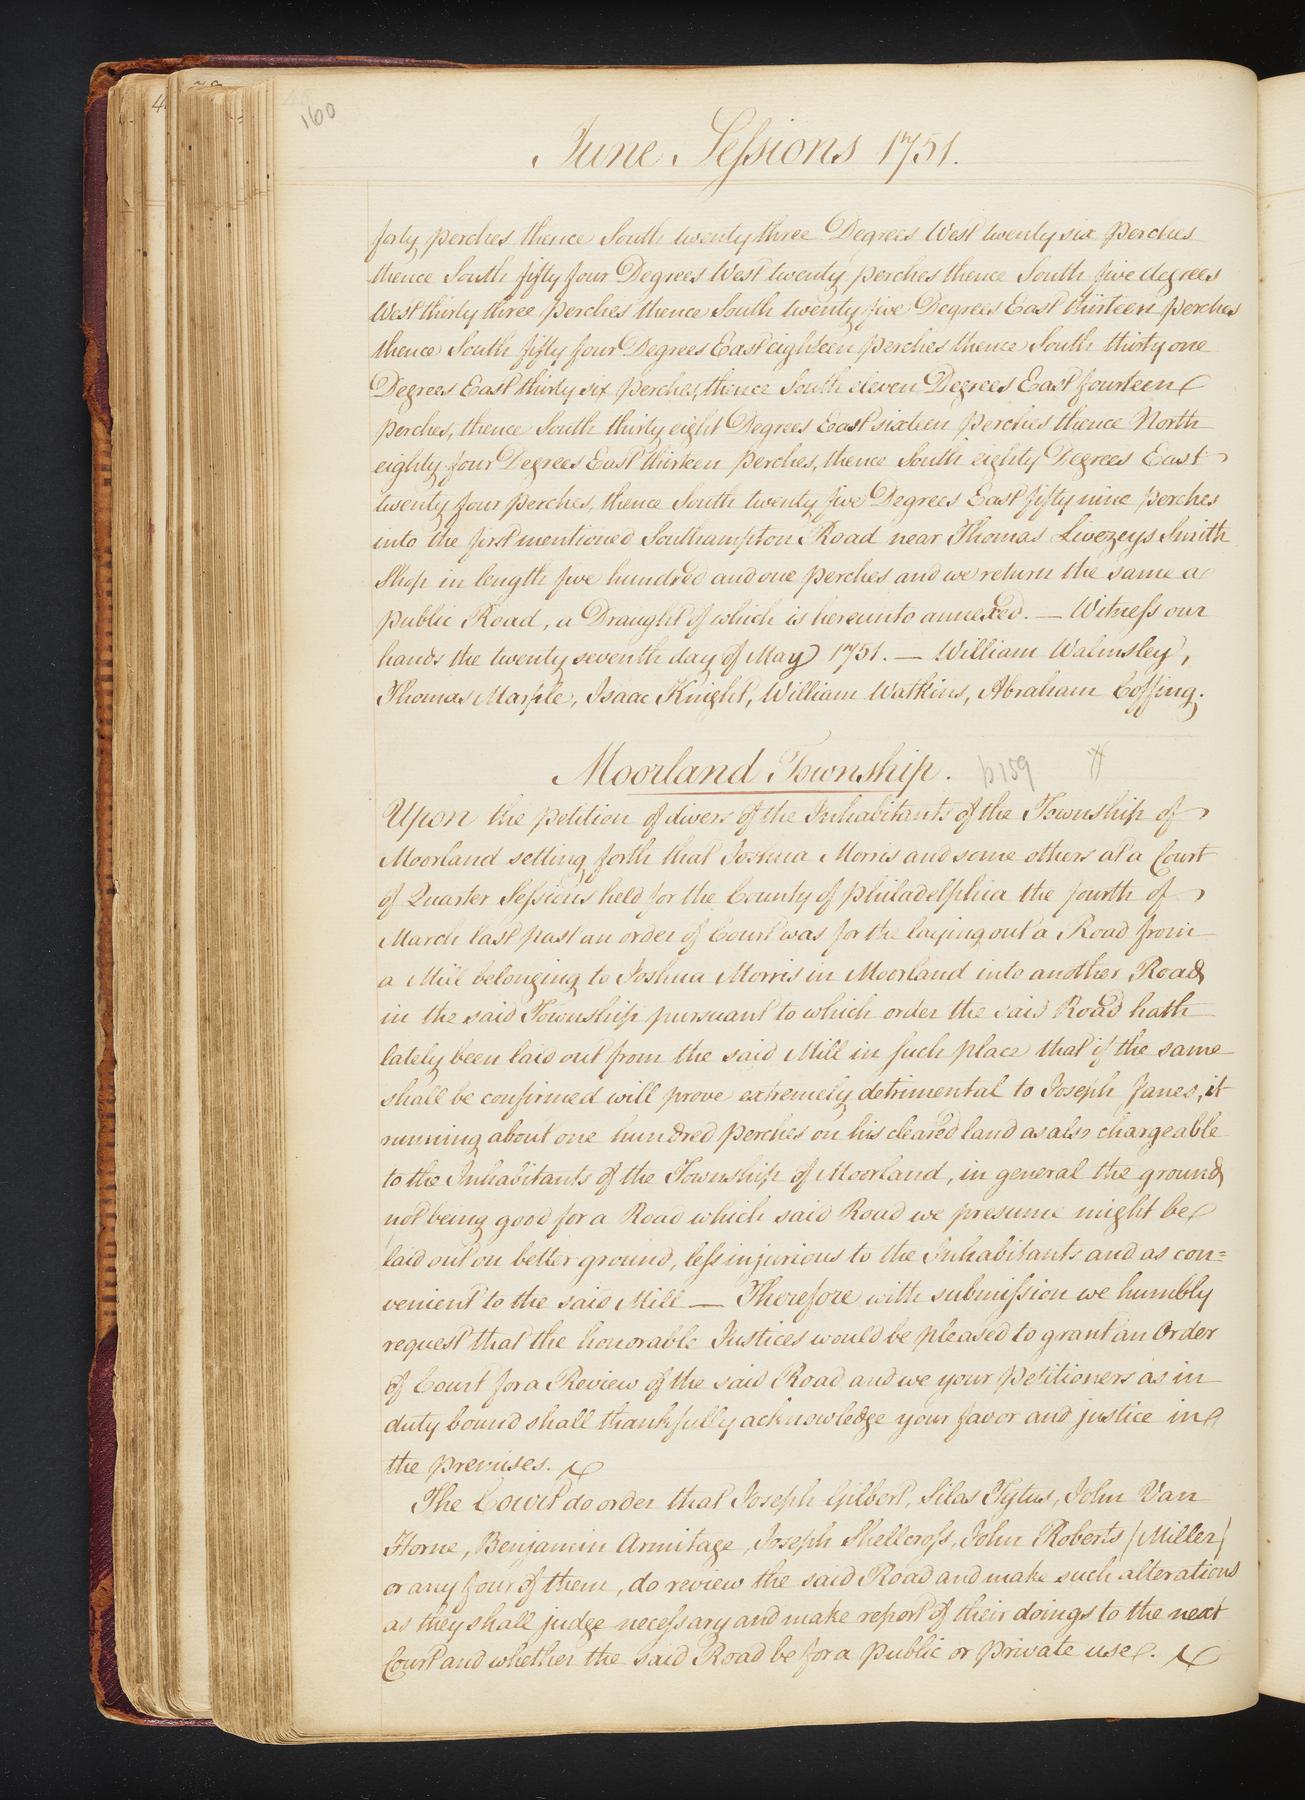 160
June Sessions 1751.
forty perches thence South twenty three Degrees West twenty six perches
thence South fifty four Degrees West twenty perches thence South five degrees
West thirty three perches thence South twenty five Degrees East thirteen perches
thence South fifty four Degrees East eighteen perches thence South thirty one
Degrees East thirty six perches, thence South eleven Degrees East fourteen
perches, thence South thirty eight Degrees East sixteen perches thence North
eighty four Degrees East thirteen perches, thence South eighty Degrees East
twenty four perches, thence South twenty five Degrees East fifty nine perches
into the first mentioned Southampton Road near Thomas Livezeys Smith
Shop in length five hundred and one perches and we return the same a
public Road, a Draught of which is hereunto annexed. — Witness our
hands the twenty seventh day of May 1751. — William Walmsley,
Thomas Marple, Isaac Knight, William Watkins, Abraham Coffing.
Moorland Township. p 159
Upon the petition of divers of the Inhabitants of the Township of
Moorland setting forth that Joshua Morris and some others at a Court
of Quarter Sessions held for the County of Philadelphia the fourth of
March last past an order of Court was for the laying out a Road from
a Mill belonging to Joshua Morris in Moorland into another Road
in the said Township pursuant to which order the said Road hath
lately been laid out from the said Mill in such place that if the same
shall be confirmed will prove extremely detrimental to Joseph Janes, it
running about one hundred perches on his cleared land as also chargeable
to the Inhabitants of the Township of Moorland, in general the ground
not being good for a Road which said Road we presume might be
laid out on better ground, less injurious to the Inhabitants and as con=
venient to the said Mill — Therefore with submission we humbly
request that the honorable Justices would be pleased to grant an Order
of Court for a Review of the said Road and we your Petitioners as in
duty bound shall thankfully acknowledge your favor and justice in
the premises.
The Court do order that Joseph Gilbert, Silas Tytus, John Van
Horne, Benjamin Armitage, Joseph Shellcross, John Roberts (Miller)
or any four of them, do review the said Road and make such alterations
as they shall judge necessary and make report of their doings to the next
Court and whether the said Road be for a public or private use.